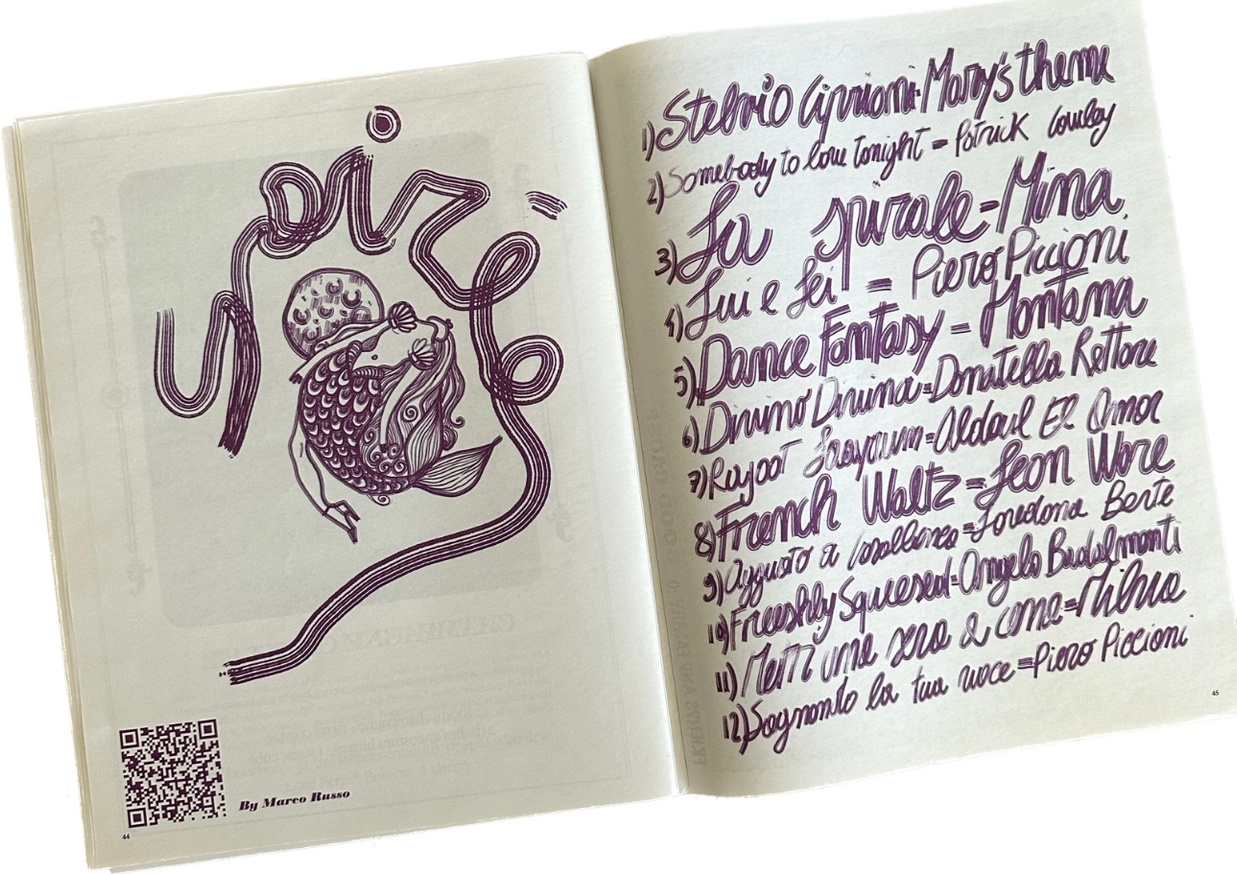 By Marco Russo
44
1) Stelvio Cipriani - Mary's theme
2) Somebody to love tonight = Patrick Cowley
3) La spirale = Mina
4) Lui e Lei = Piero Piccioni
5) Dance Fantasy = Montana
6) Divino Divina = Donatella Rettore
7) = El Omar
8) French Waltz = Leon Ware
9) Aggusto a Casablanca = Loredana Berte
10) Freeshly Squesed = Angelo Badalmenti
11) Metti una sera a cena = Milva
12) Sognando la tua voce = Piero Piccioni
45